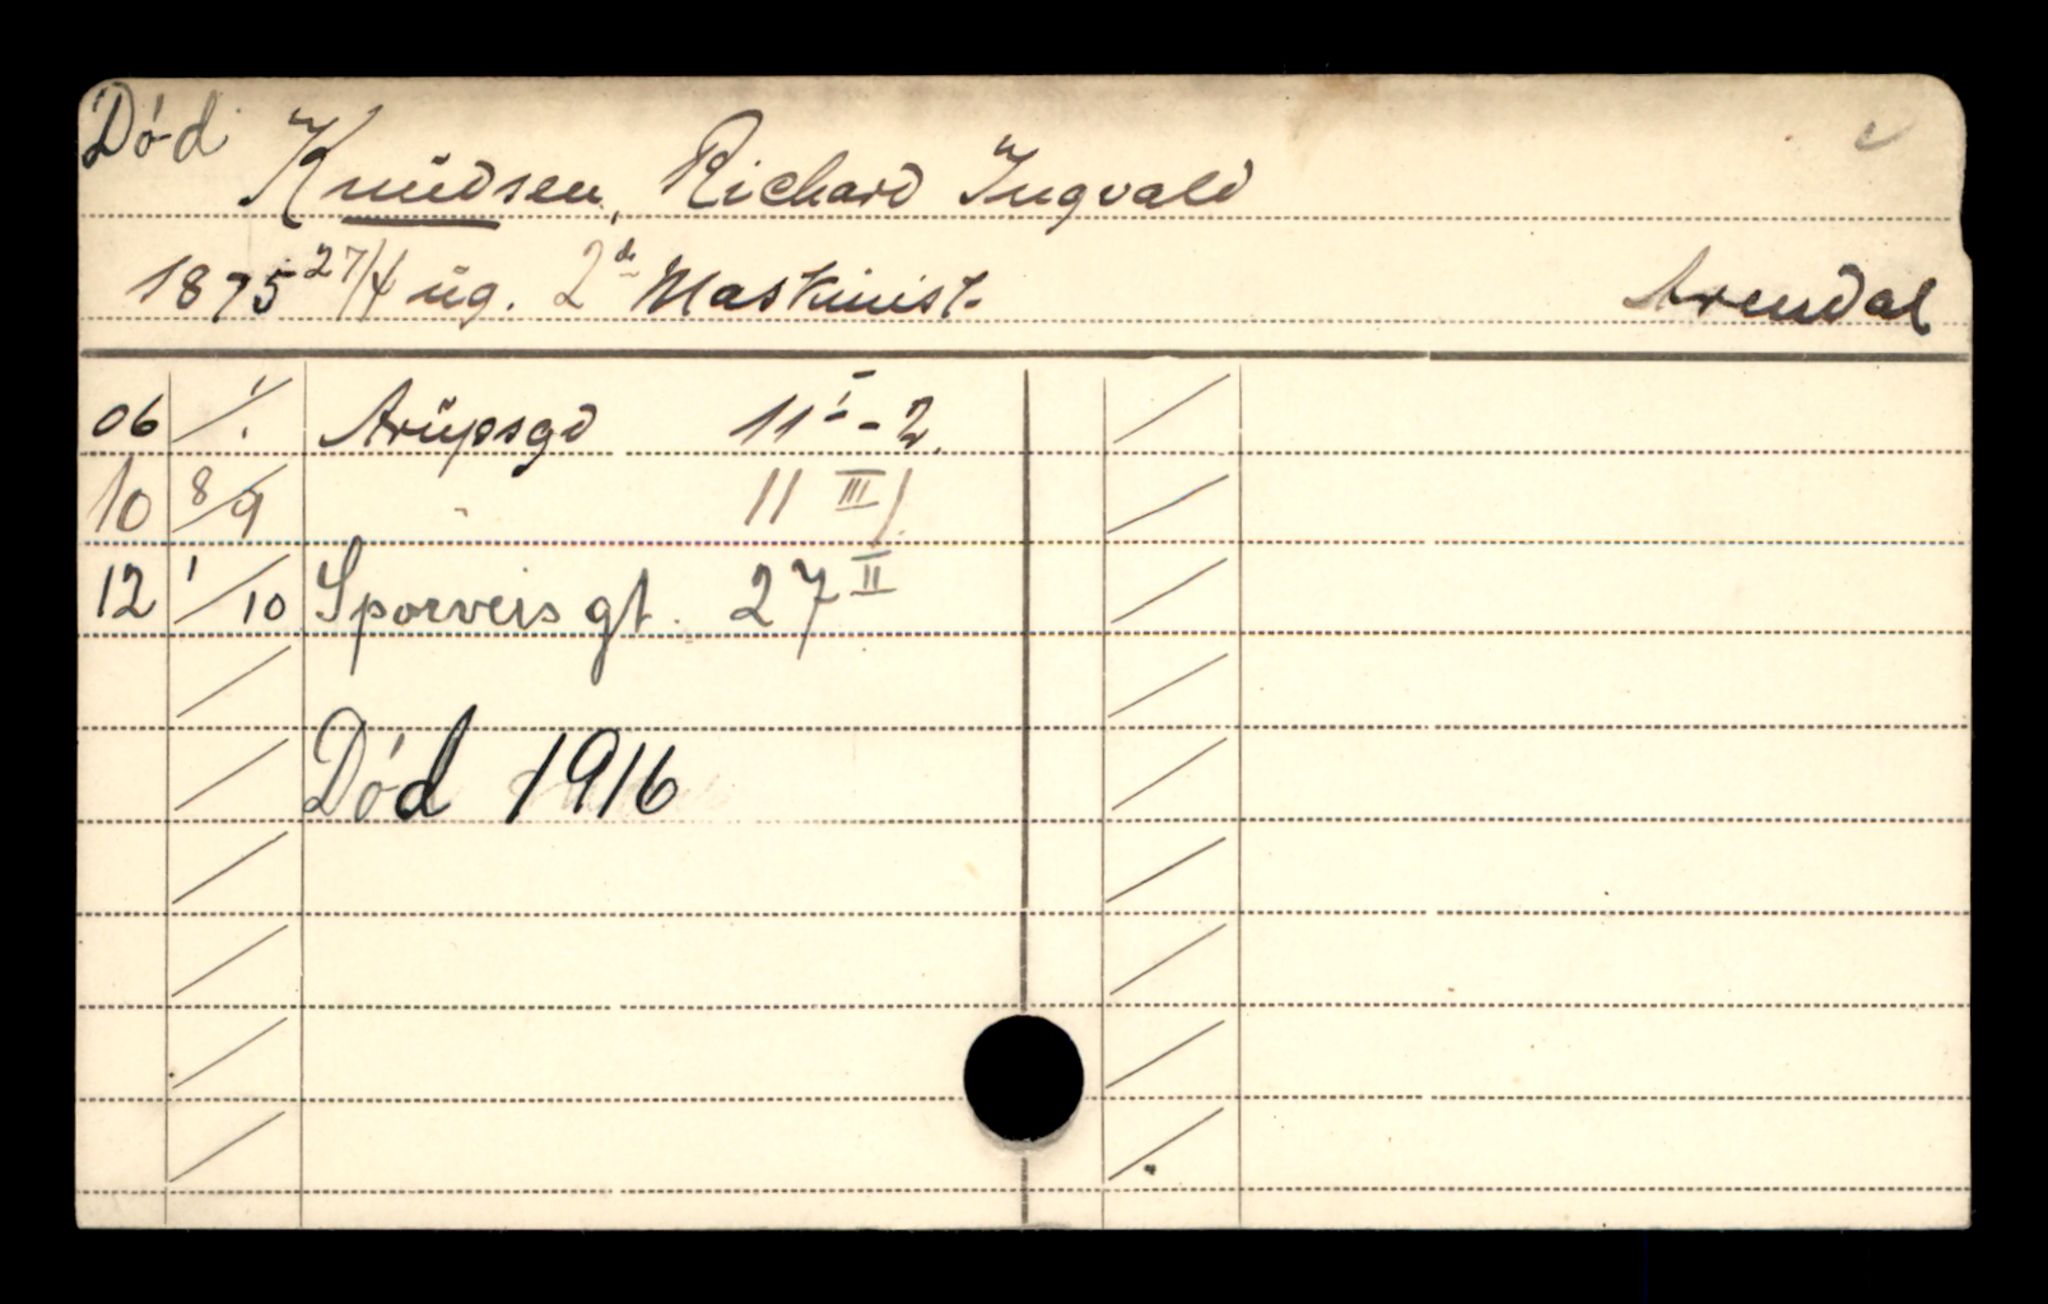 Död Knüdsen, Richard Ingvald
1875 27/4 üg. 2de Maskinist. Arendal
06 1/1 Arüpsgd 11 I - 2.
10 8/9 " 11 III/1.
12 1/10 Sporveisgt. 27 II
Död 1916